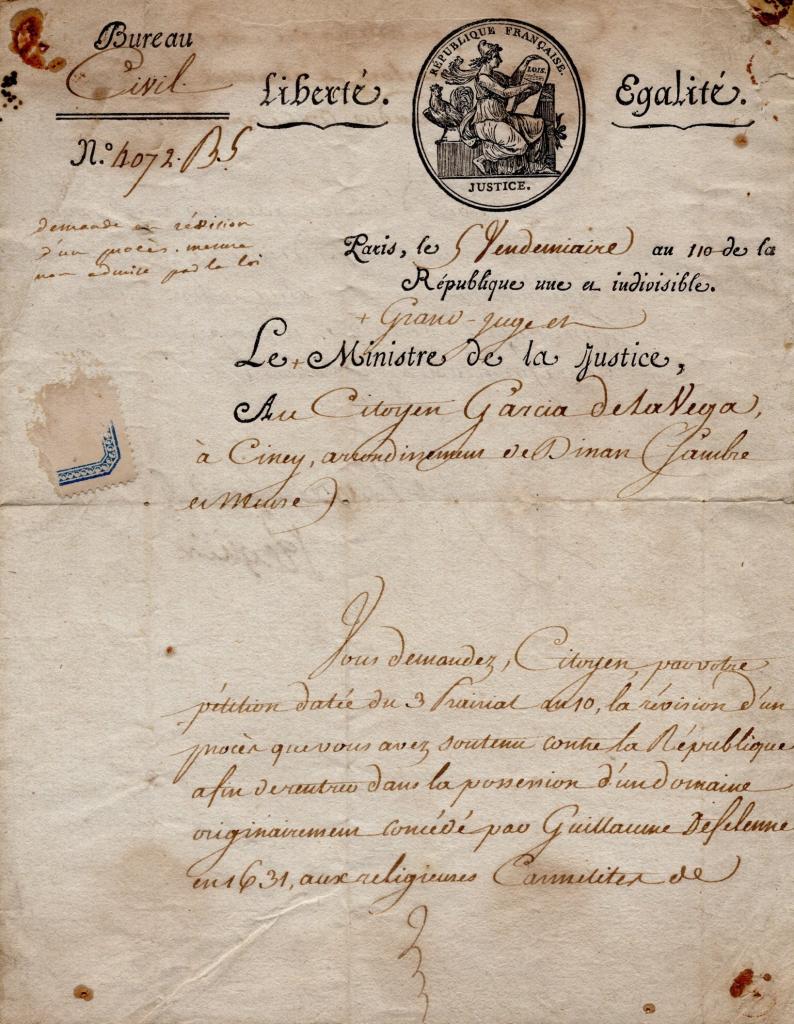 Bureau
Civil
Liberté.
RÉPUBLIQUE FRANÇAISE.
LOIS
JUSTICE.
Egalité.
N.º 4072. B5
demande en révision
d'un procès. mesure
non admise par la loi
Paris, le 5 Vendemiaire an 11 de la
République une et indivisible.
+ Grand-juge et
Le + Ministre de la Justice,
Au Citoyen Garcia de la Vega,
à Ciney, arrondissement de Dinan (Sambre
et Meuse).
Vous demandez, Citoyen, par votre
pétition datée du 3 Prairial an 10, la révision d'un
procès que vous avez soutenu contre la République
afin de rentrer dans la possession d'un domaine
originairement concédé par Guillaume
en 1631, aux religieuses Carmelites de